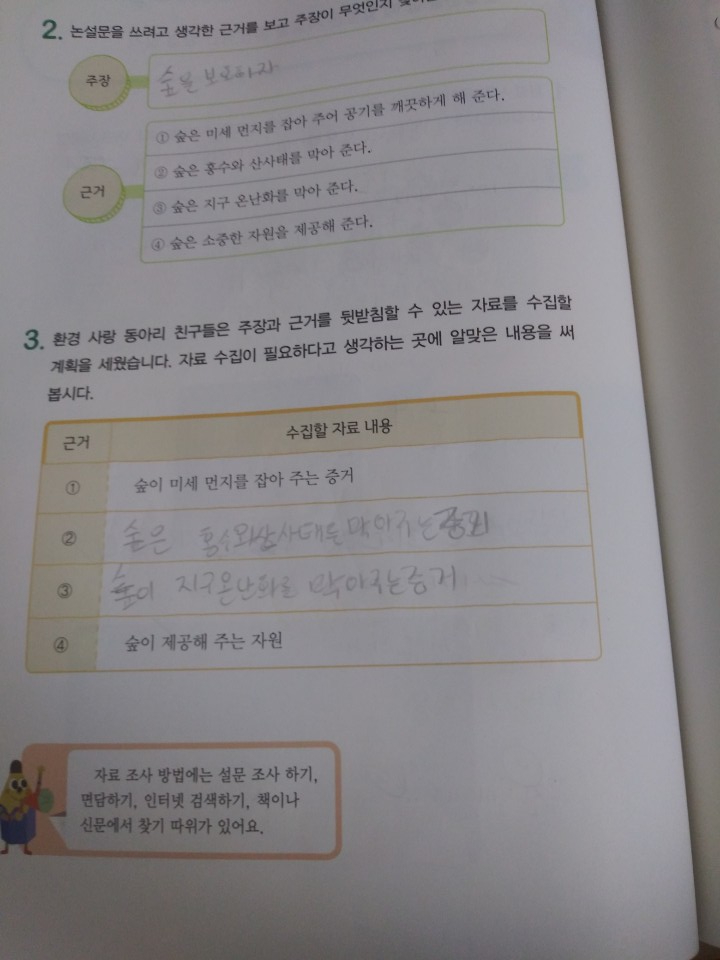 2. 논설문을 쓰려고 생각한 근거를 보고 주장이 무엇인지
주장
숲을 보호하자
① 숲은 미세 먼지를 잡아 주어 공기를 깨끗하게 해 준다.
② 숲은 홍수와 산사태를 막아 준다.
근거
③ 숲은 지구 온난화를 막아 준다.
④ 숲은 소중한 자원을 제공해 준다.
3. 환경 사랑 동아리 친구들은 주장과 근거를 뒷받침할 수 있는 자료를 수집할
계획을 세웠습니다. 자료 수집이 필요하다고 생각하는 곳에 알맞은 내용을 써
봅시다.
근거 수집할 자료 내용
① 숲이 미세 먼지를 잡아 주는 증거
② 숲은 홍수와 산사태를 막아주는
③ 숲이 지구온난화를 막아주는 증거
④ 숲이 제공해 주는 자원
자료 조사 방법에는 설문 조사 하기,
면담하기, 인터넷 검색하기, 책이나
신문에서 찾기 따위가 있어요.